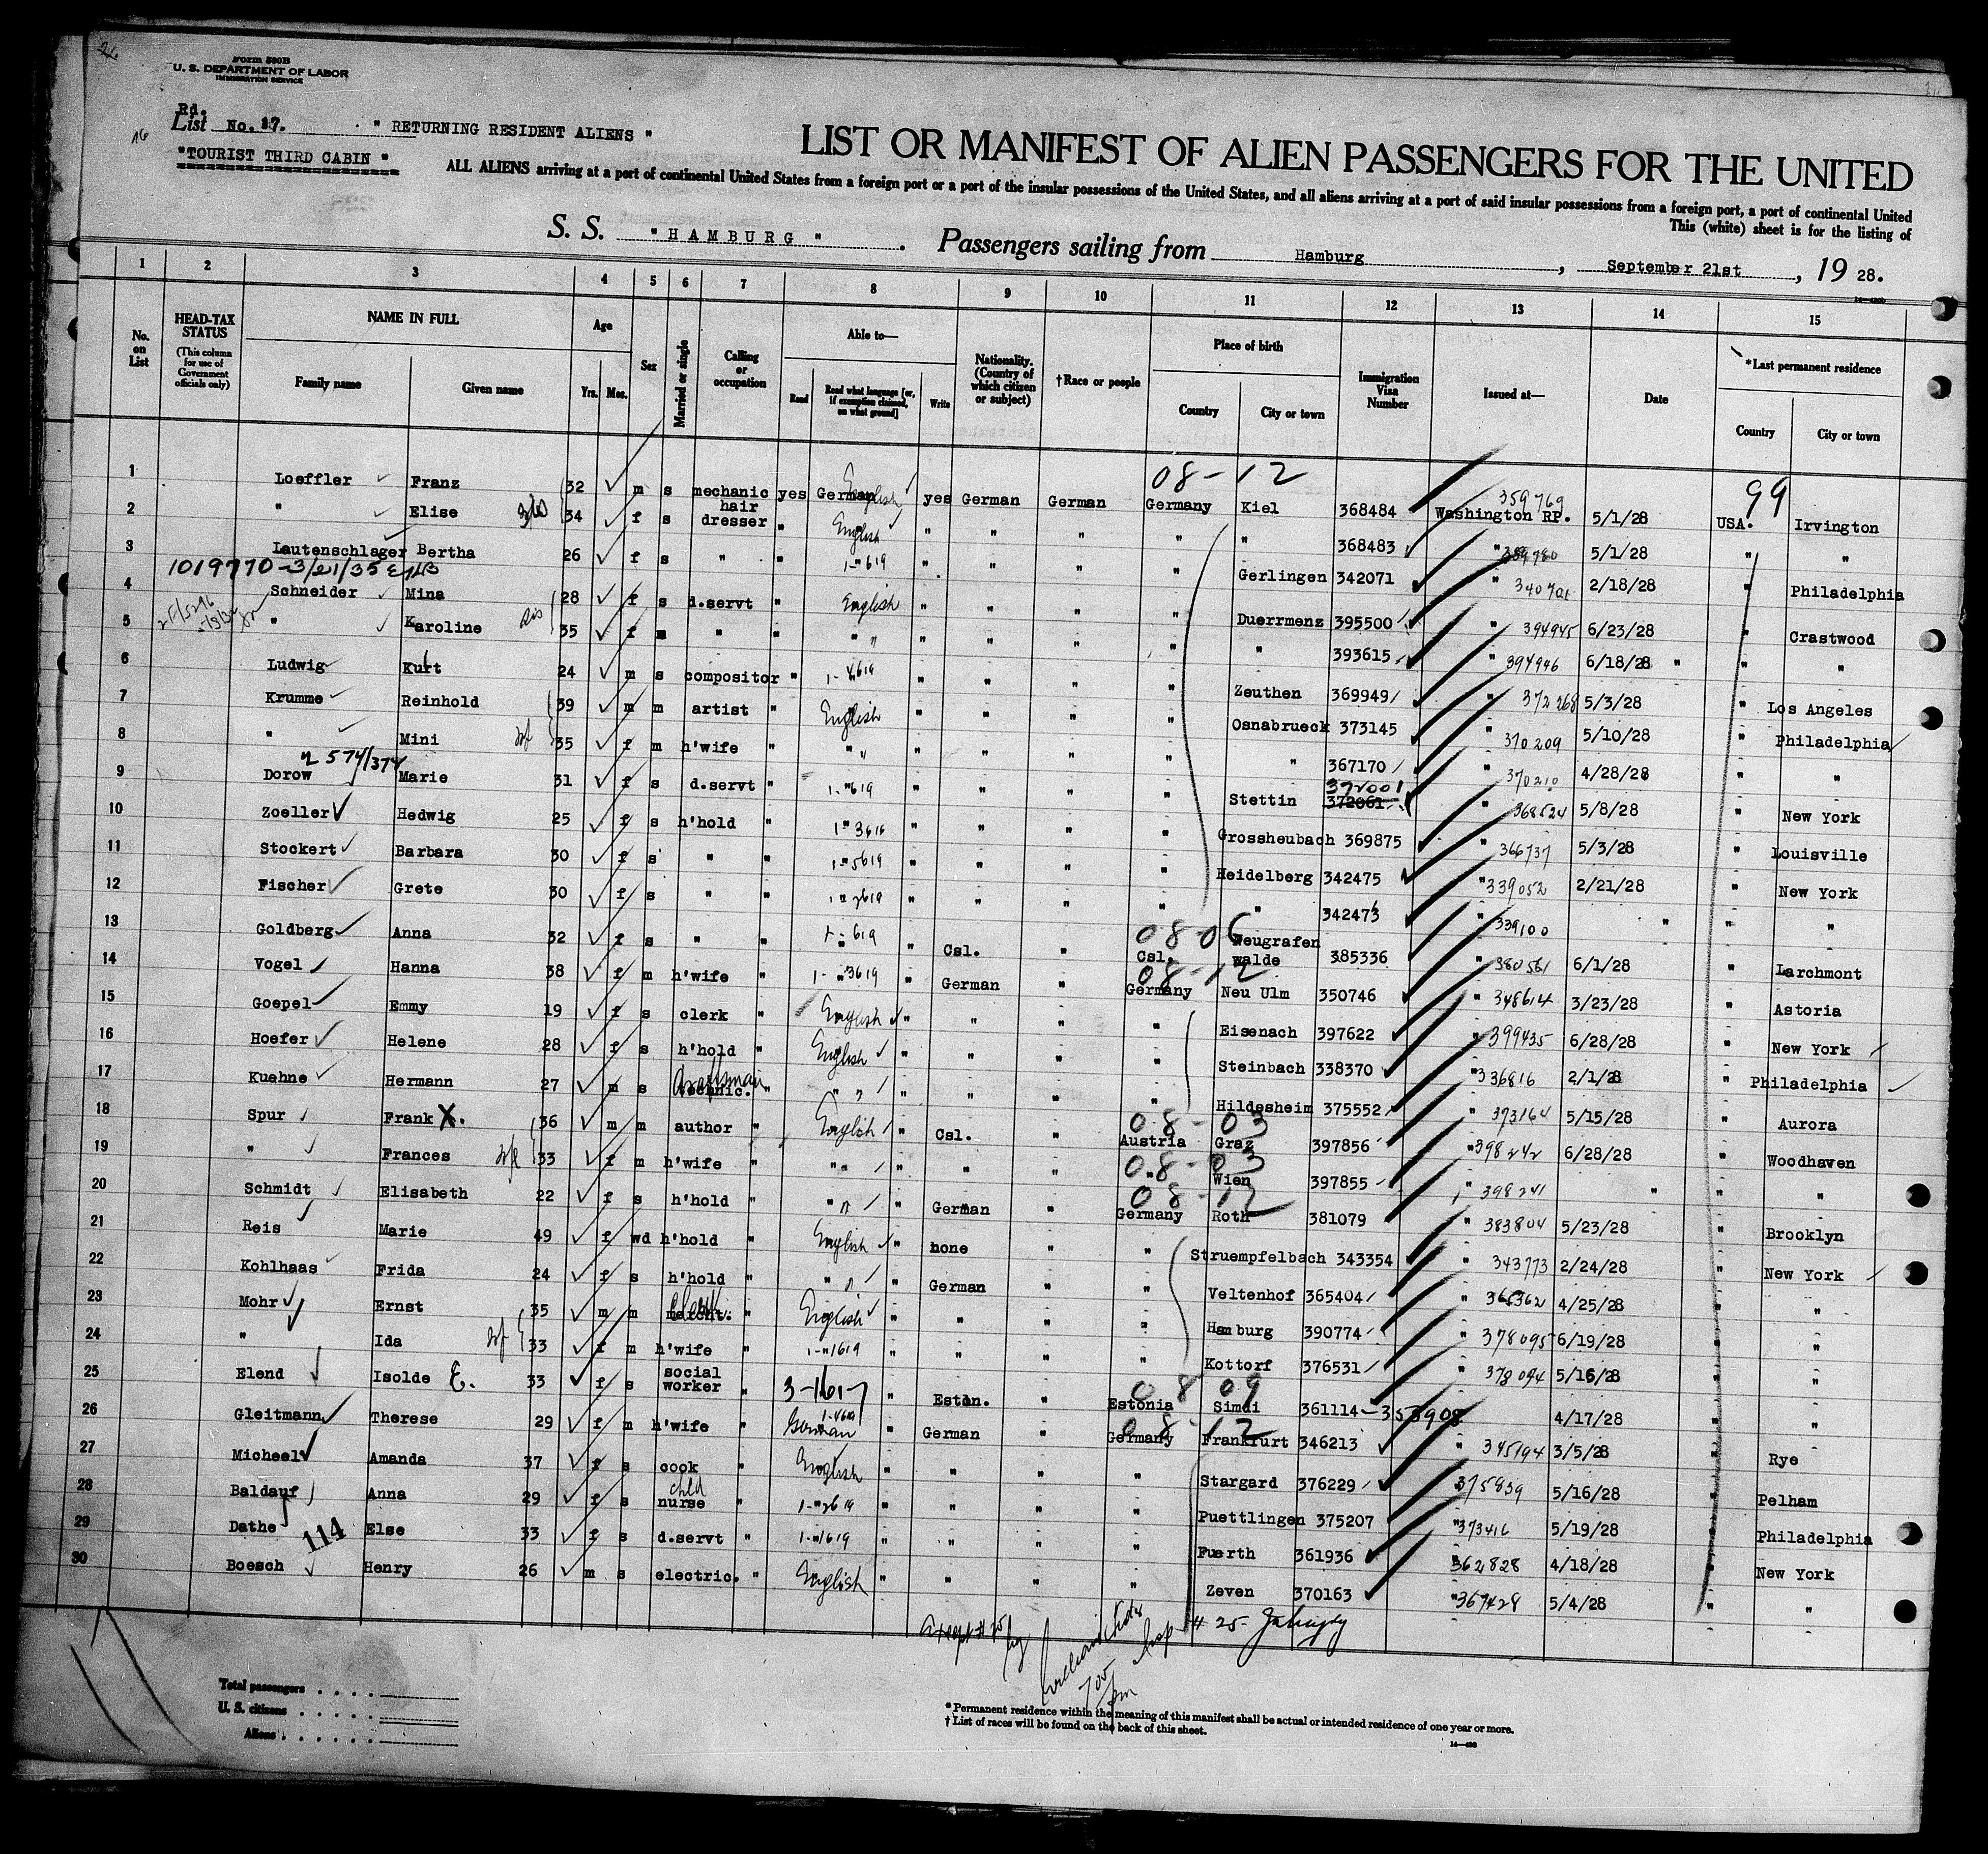 26
Form 500B
U. S. DEPARTMENT OF LABOR
IMMIGRATION SERVICE
Rd.
List No. 17. " RETURNING RESIDENT ALIENS "
"TOURIST THIRD CABIN "
LIST OR MANIFEST OF ALIEN PASSENGERS FOR THE UNITED
ALL ALIENS arriving at a port of continental United States from a foreign port or a port of the insular possessions of the United States, and all aliens arriving at a port of said insular possessions from a foreign port, a port of continental United
This (white) sheet is for the listing of
S. S. " H A M B U R G " . Passengers sailing from Hamburg , September 21st , 19 28.
1 2 3 4 5 6 7 8 9 10 11 12 13 14 15
No. on List
HEAD-TAX STATUS (This column for use of Government officials only)
NAME IN FULL Family name Given name
Age Yrs. Mos.
Sex
Married or single
Calling or occupation
Able to— Read Read what language [or, if exemption claimed, on what ground] Write
Nationality. (Country of which citizen or subject)
†Race or people
Place of birth Country City or town
Immigration Visa Number
Issued at—
Date
*Last permanent residence Country City or town
08-12 99
1 Loeffler Franz 32 m s mechanic yes German English yes German German Germany Kiel 368484 359769 Washington RP. 5/1/28 USA. Irvington
2 " Elise 34 f s hair dresser " English " " " " " 368483 " 359780 5/1/28 " "
3 Lautenschlager Bertha 26 f s " " 1-"619 " " " " Gerlingen 342071 " 2/18/28 " Philadelphia
1019770-3/21/35
4 Schneider Mina 28 f s d.servt " English " " " " Duerrmenz 395500 " 394945 6/23/28 " Crastwood
5 " Karoline 35 f m " " " " " " " " " 393615 " 394946 6/18/28 " " "
6 Ludwig Kurt 24 m s compositor " " " " " Zeuthen 369949 " 372268 5/3/28 " Los Angeles
7 Krumme Reinhold 39 m m artist " English " " " " Osnabrueck 373145 " 370209 5/10/28 " Philadelphia
8 " Mini wf 35 f m h'wife " " " " " " " " 367170 " 370210 4/28/28 " "
2 574/374
9 Dorow Marie 31 f s d.servt " 1-"619 " " " " Stettin 372061 372001 " 368524 5/8/28 " New York
10 Zoeller Hedwig 25 f s h'hold " 1-"3619 " " " " Grossheubach 369875 " 366737 5/3/28 " Louisville
11 Stockert Barbara 30 f s " " 1-"5619 " " " " Heidelberg 342475 " 339052 2/21/28 " New York
12 Fischer Grete 30 f s " " 1-"2619 " " " " " 342473 " 339100 " " "
08-06
13 Goldberg Anna 32 f s " " 1-"619 " Csl. " Csl. Neugrafen walde 385336 " 380561 6/1/28 " Larchmont
08-12
14 Vogel Hanna 38 f m h'wife " 1-"3619 " German " Germany Neu Ulm 350746 " 348614 3/23/28 " Astoria
15 Goepel Emmy 19 f s clerk " English " " " " Eisenach 397622 " 399435 6/28/28 " New York
16 Hoefer Helene 28 f s h'hold " English " " " " Steinbach 338370 " 336816 2/1/28 " Philadelphia
17 Kuehne Hermann 27 m s technic. Draftsman " " " " " " " Hildesheim 375552 " 373164 5/15/28 " Aurora
08-03
18 Spur Frank X. 36 m m author " English " Csl. " Austria Graz 397856 " 398242 6/28/28 " Woodhaven
08-03
19 " Frances wf 33 f m h'wife " " " " " " " Wien 397855 " 398241 " " "
08-12
20 Schmidt Elisabeth 22 f s h'hold " " " " German " Germany Roth 381079 " 383804 5/23/28 " Brooklyn
21 Reis Marie 49 f wd h'hold " English " none " " Struempfelbach 343354 " 343773 2/24/28 " New York
22 Kohlhaas Frida 24 f s h'hold " " " " German " " Veltenhof 365404 " 365362 4/25/28 " "
23 Mohr Ernst 35 m m mercht. Clerk " English " " " " Hamburg 390774 " 378095 6/19/28 " "
24 " Ida wf 33 f m h'wife " 1-"1619 " " " " Kottorf 376531 " 378094 5/16/28 " "
08 09
25 Elend Isolde E. 33 f s social worker " 3-1617 " Eston. " Estonia Simdi 361114-358908 4/17/28 " "
08-12
26 Gleitmann Therese 29 f m h'wife " German " German " Germany Frankfurt 346213 " 345194 3/5/28 " Rye
27 Micheel Amanda 37 f s cook " English " " " " Stargard 376229 " 375839 5/16/28 " Pelham
28 Baldauf Anna 29 f s chld nurse " 1-"2619 " " " " Puettlingen 375207 " 373416 5/19/28 " Philadelphia
29 Dathe Else 33 f s d.servt " 1-"1619 " " " " Fuerth 361936 " 362828 4/18/28 " New York
114
30 Boesch Henry 26 m s electric. " English " " " " Zeven 370163 " 367428 5/4/28 " "
Except # 25 by # 25-
Total passengers . . . .
U. S. citizens . . . . .
Aliens . . . . . .
* Permanent residence within the meaning of this manifest shall be actual or intended residence of one year or more.
† List of races will be found on the back of this sheet.